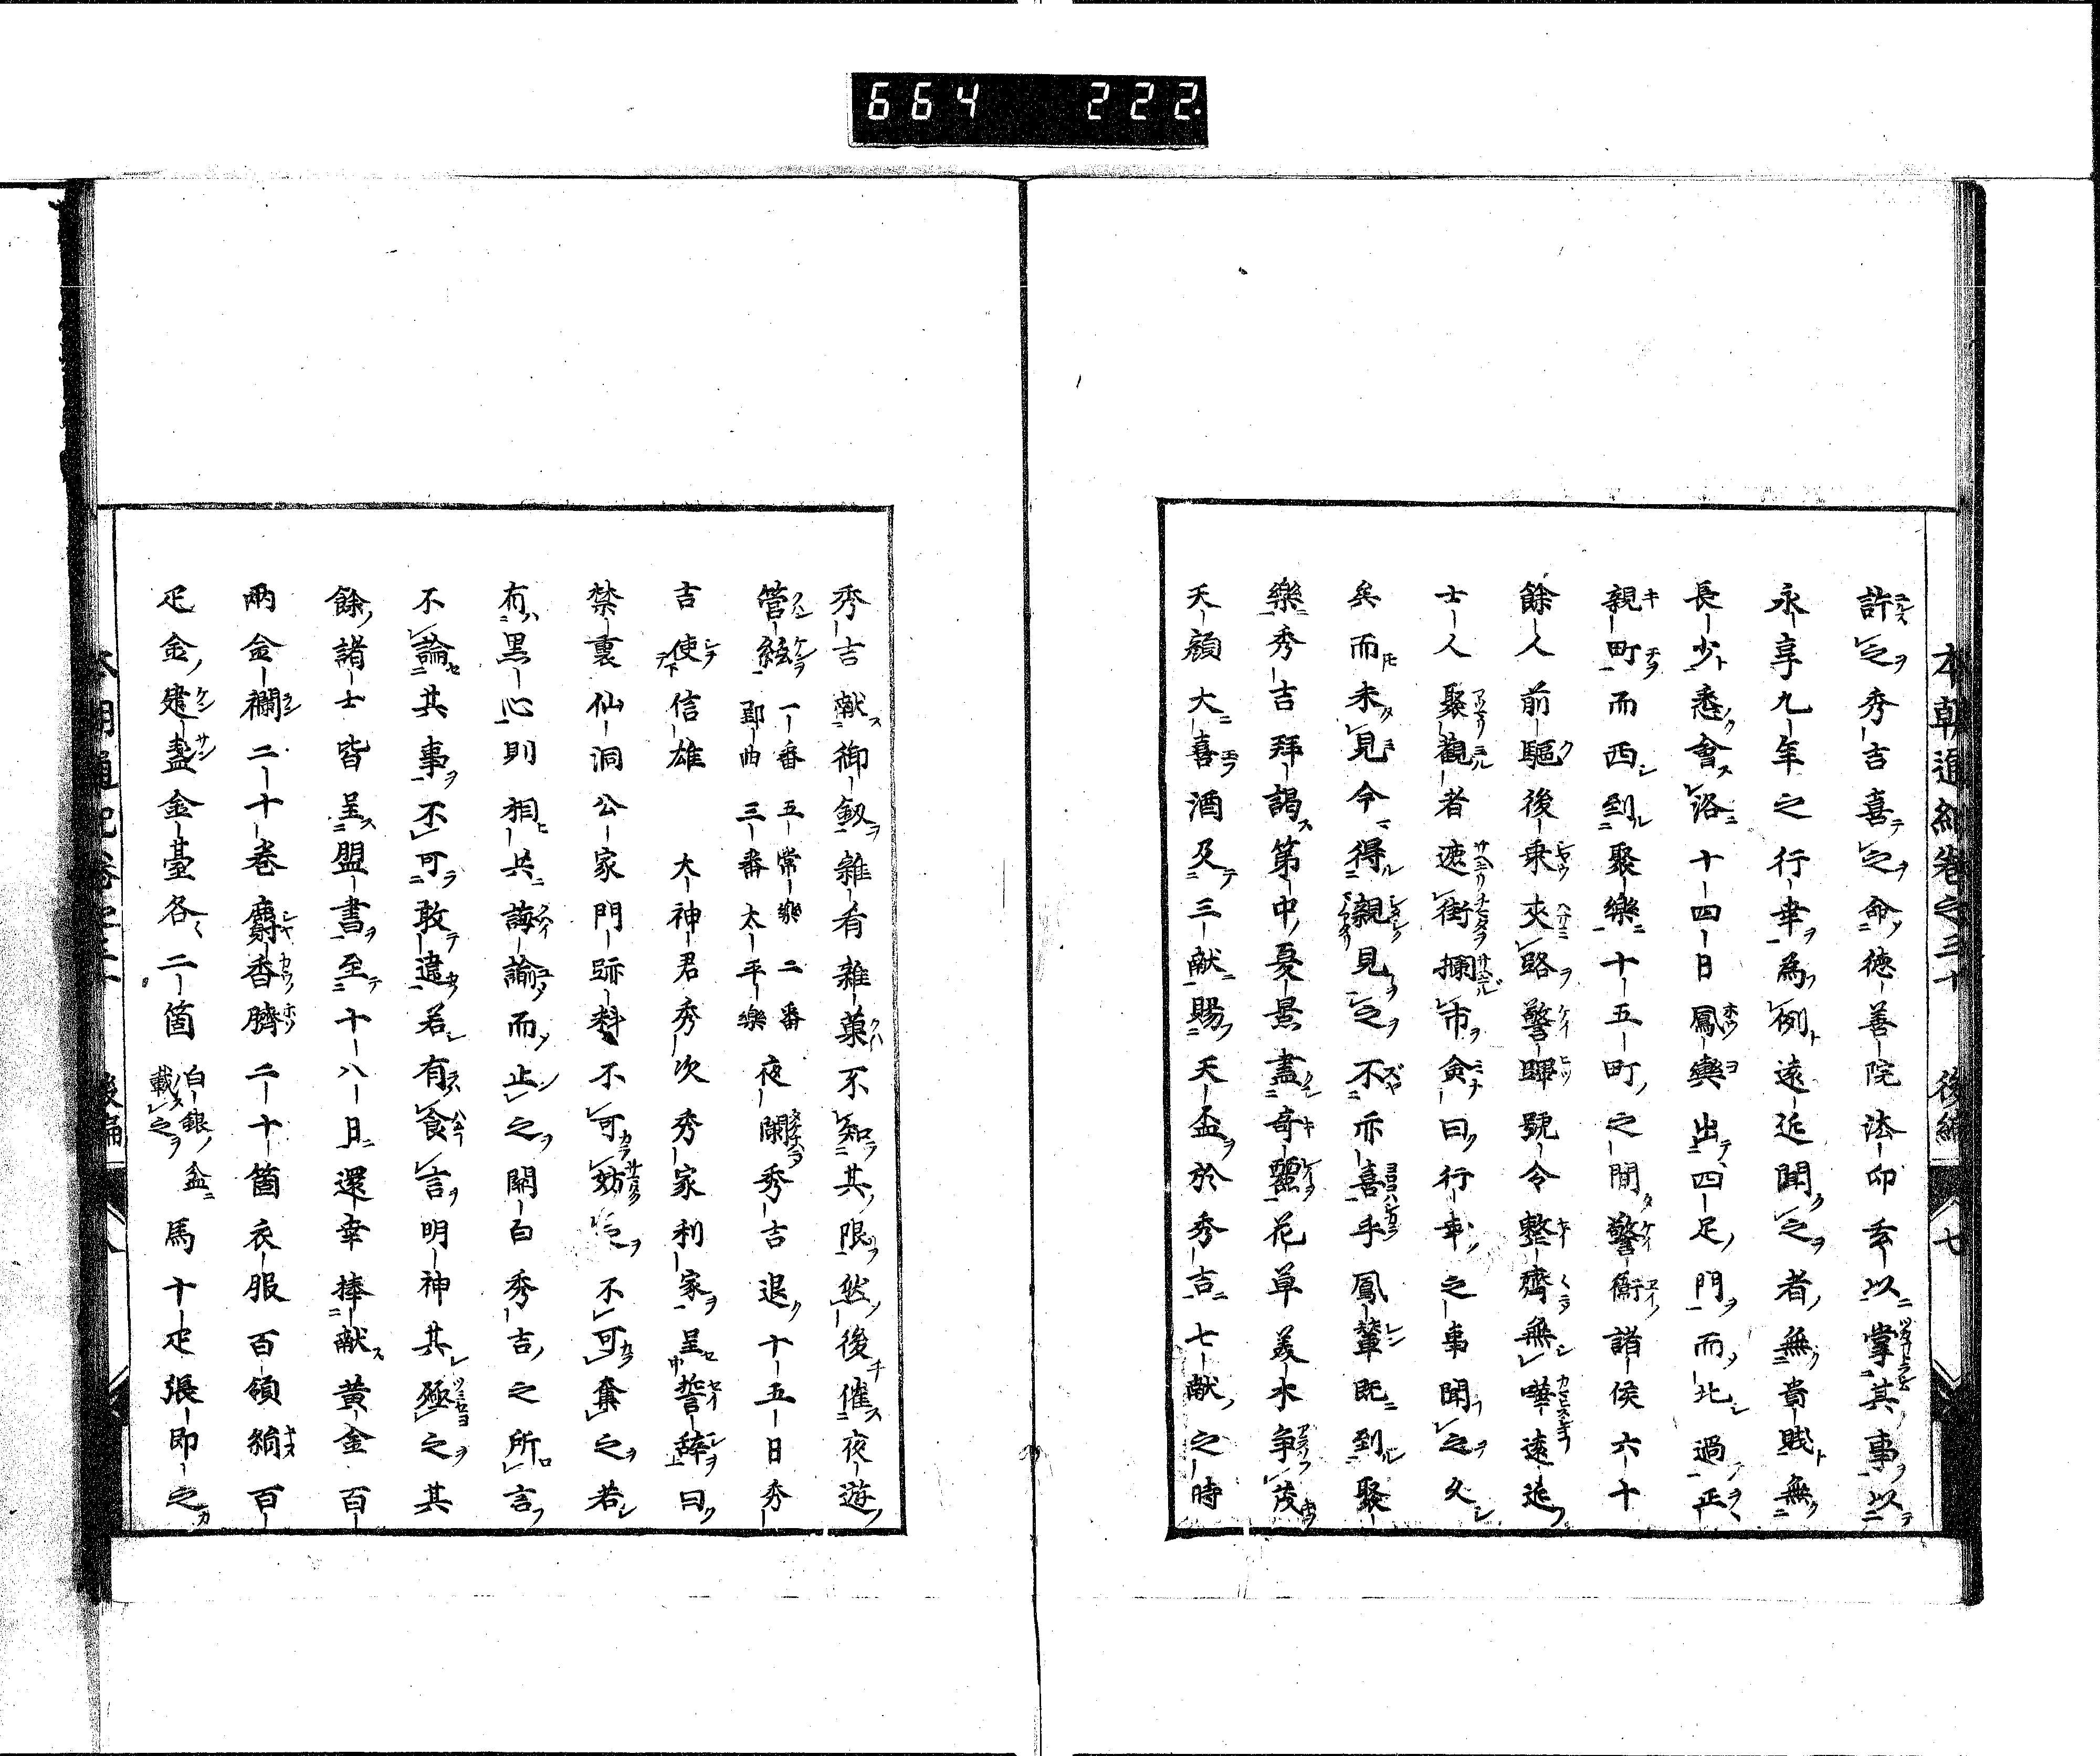 664 222
本朝通紀卷之三十 後編 七
許之秀吉喜之命德善院法印玄以掌其事以
永享九年之行幸爲例遠近聞之者無貴賤無
長少悉會洛十四日鳳輿出四足門而北過正
親町而西到聚樂十五町之間警衞諸侯六十
餘人前驅後乘夾路警蹕號令整齊無嘩遠近
士人聚觀者遮街攔市僉曰行幸之事聞之久
矣而未見今得親見之不亦喜乎鳳輦既到聚
樂秀吉拜謁第中憂景盡奇麗花草美水争茂
天顏大喜酒及三献賜天盃於秀吉七献之時
秀吉献御劔雜肴雜菓不知其限然後催夜遊
管絃 一番五常樂二番郢曲三番太平樂 夜闌秀吉退十五日秀
吉使信雄 大神君秀次秀家利家呈誓辞曰
禁裏仙洞公家門跡料不可妨之不可奪之若
有黒心則相共誨諭而止之關白秀吉之所言
不論其事不可敢違若有食言明神其殛之其
餘諸士皆呈盟書至十八日還幸捧献黄金百
兩金襴二十卷麝香臍二十箇衣服百領絹百
疋金建盞金臺各二箇 白銀盆載之 馬十疋張即之
本朝通紀卷之三十 後編 八